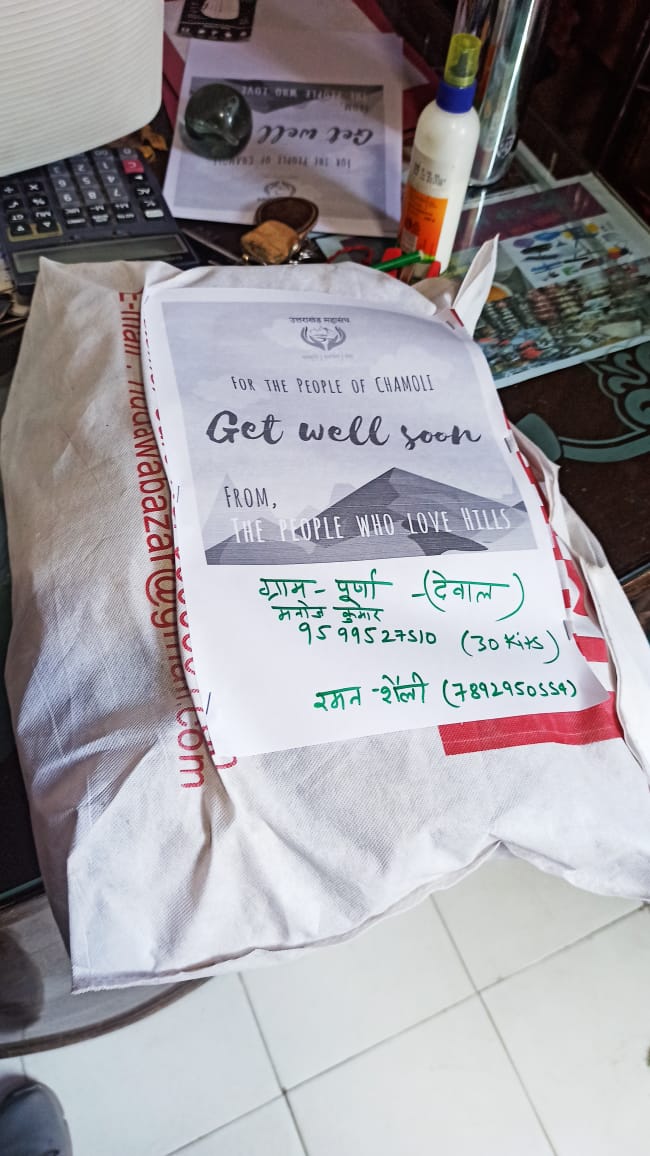 उत्तराखंड महासंघ
FOR THE PEOPLE OF CHAMOLI
Get well soon
FROM,
THE PEOPLE WHO LOVE HILLS
ग्राम - पूर्णा - (देवाल)
मनोज कुमार
9599527510 (30 Kits)
रमन - शैली (7892950554)
FROM,
THE PEOPLE WHO LOVE
Get well
FOR THE PEOPLE OF CHAMOLI